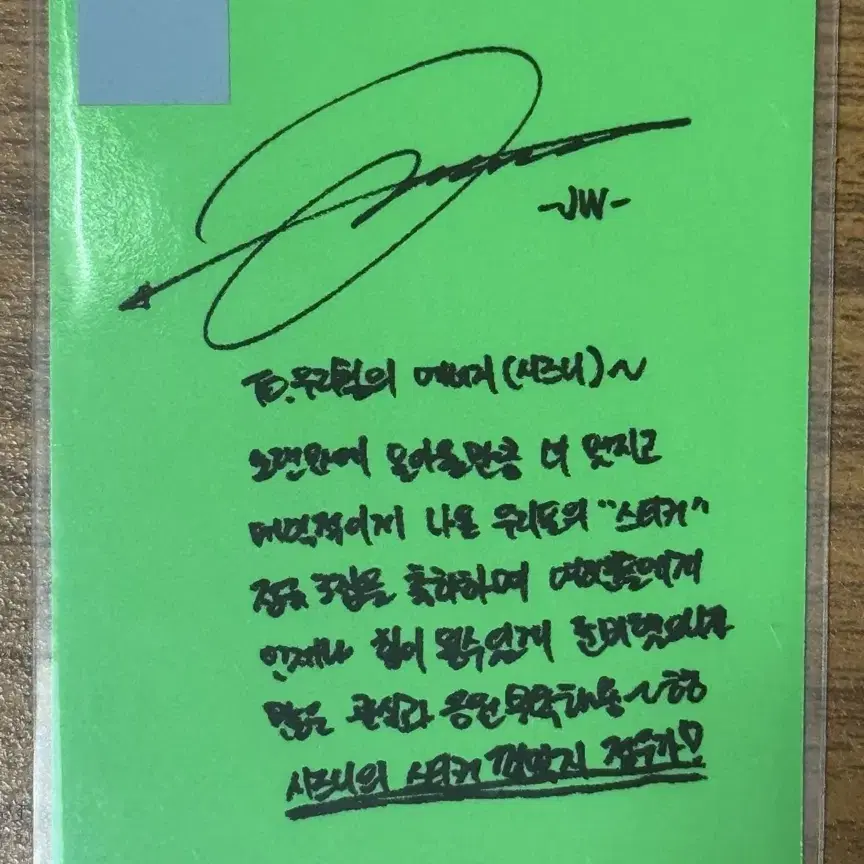 -JW-
TO.우리팀의 에너지(시즈니)~
오랜만에 돌아온만큼 더 멋지고
매력적이게 나올 우리들의 "스티커"
정규 3집을 축하하며 여러분들에게
언제나 힘이 될수있게 준비했으니까
많은 관심과 응원 부탁해용~헝
시즈니의 스티커 껌딱지 정우가♡